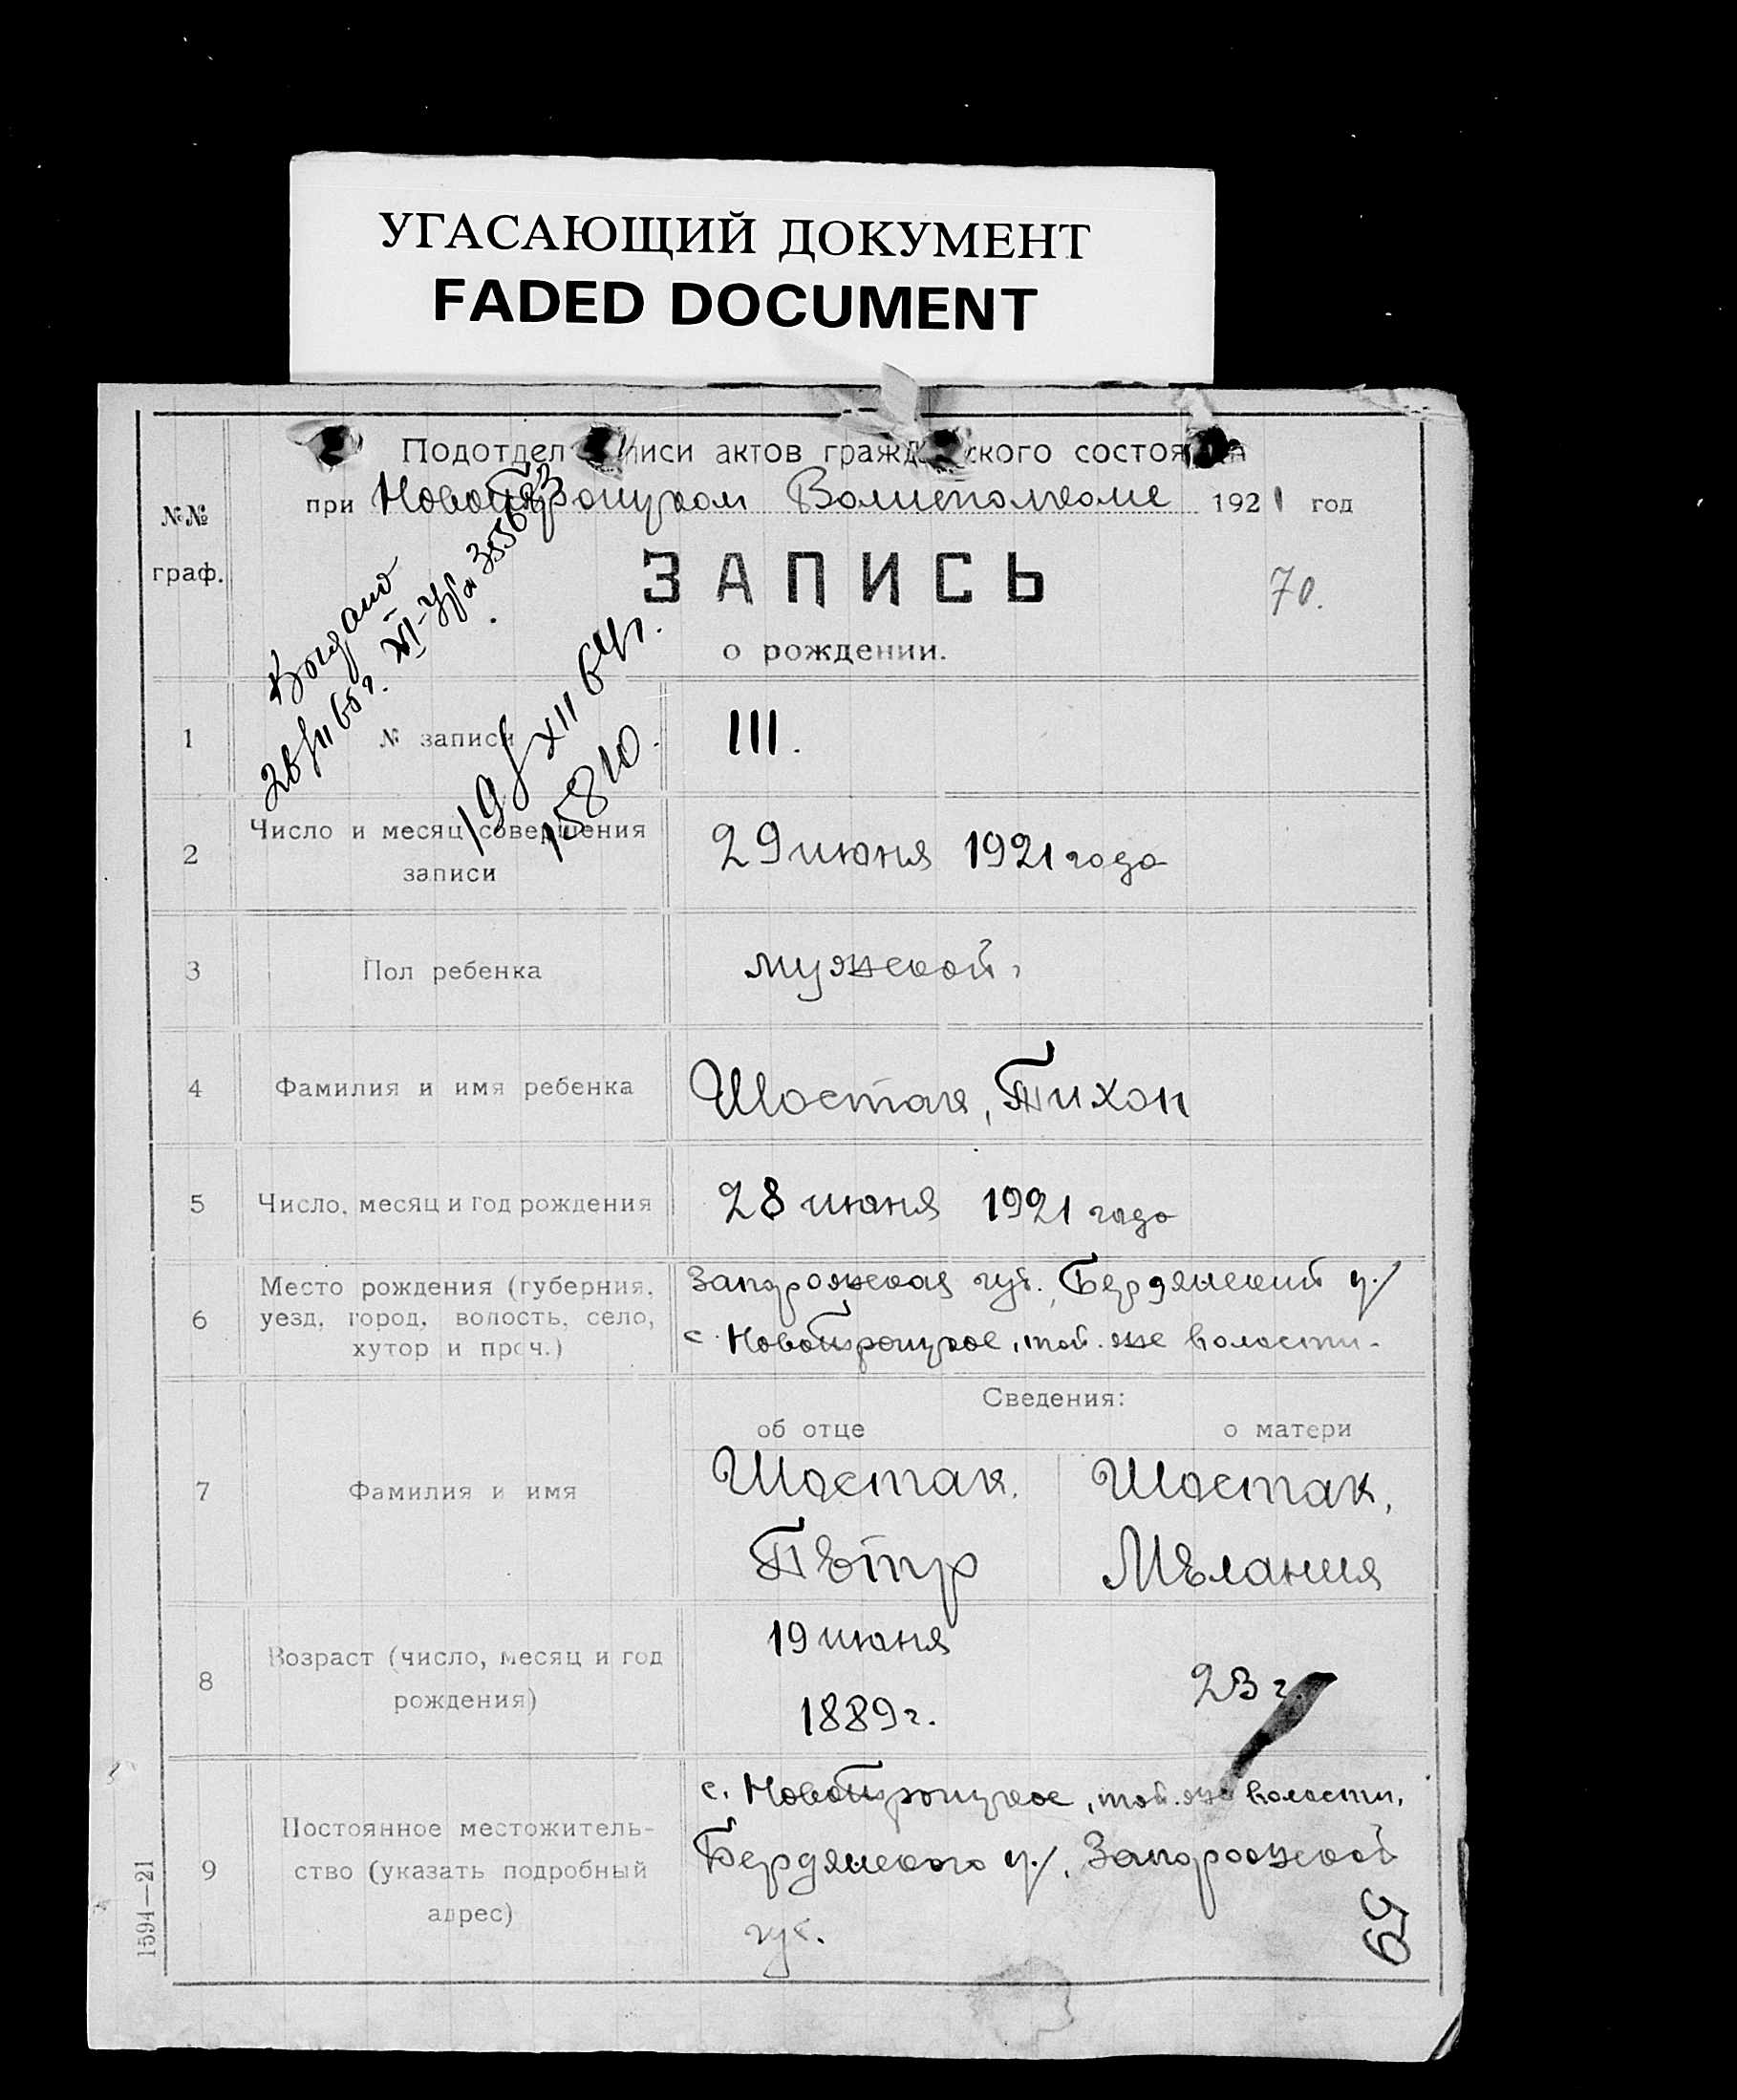 УГАСАЮЩИЙ ДОКУМЕНТ
FADED DOCUMENT
Подотдел записи актов гражданского состояния
при Новотроицком Волисполкоме 1921 год
№№
граф.
ЗАПИСЬ
70.
о рождении.
Выдано
19/XII 64г.
15810.
1 № записи 111.
2 Число и месяц совершения
записи
29 июня 1921 года
3 Пол ребенка мужской.
4 Фамилия и имя ребенка Шостак, Тихон
5 Число, месяц и год рождения 28 июня 1921 года
6 Место рождения (губерния,
уезд, город, волость, село,
хутор и проч.)
Запорожская губ., Бердянский у./
с. Новотроицкое, той-же волости.
Сведения:
об отце о матери
7 Фамилия и имя
Шостак, Шостак,
Пётр Мелания
8 Возраст (число, месяц и год
рождения)
19 июня
1889 г. 23 г.
9 Постоянное местожитель-
ство (указать подробный
адрес)
с. Новотроицкое, той-же волости,
Бердянского у./, Запорожской
губ.
59
1594—21